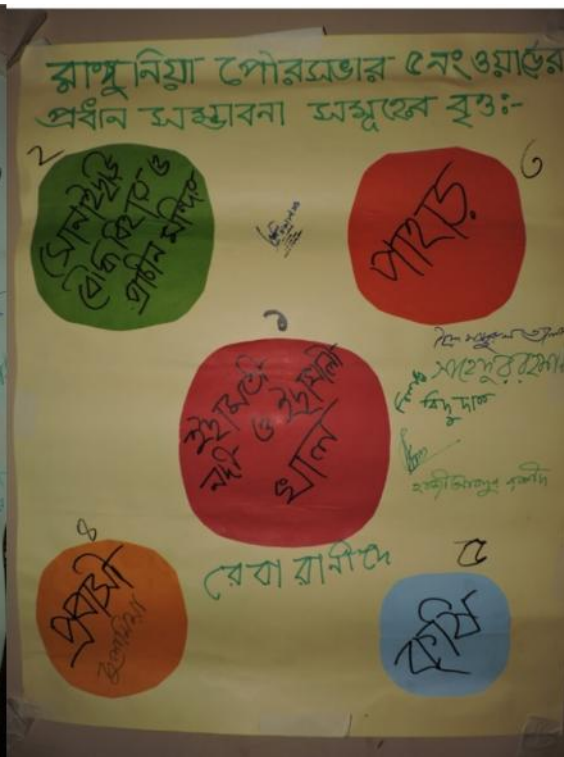 রাঙ্গুনিয়া পৌরসভার ৫নং ওয়ার্ডের
প্রধান সম্ভাবনা সমূহের বৃত্ত:-
২
সোনাইছড়ি
বৌদ্ধ বিহার ও
প্রাচীন মন্দির
৩
পাহাড়
১
ইছামতী
নদী ও ইছামতী
খাল
রেবা রানী দে
৪
প্রবাসী
৫
কৃষি